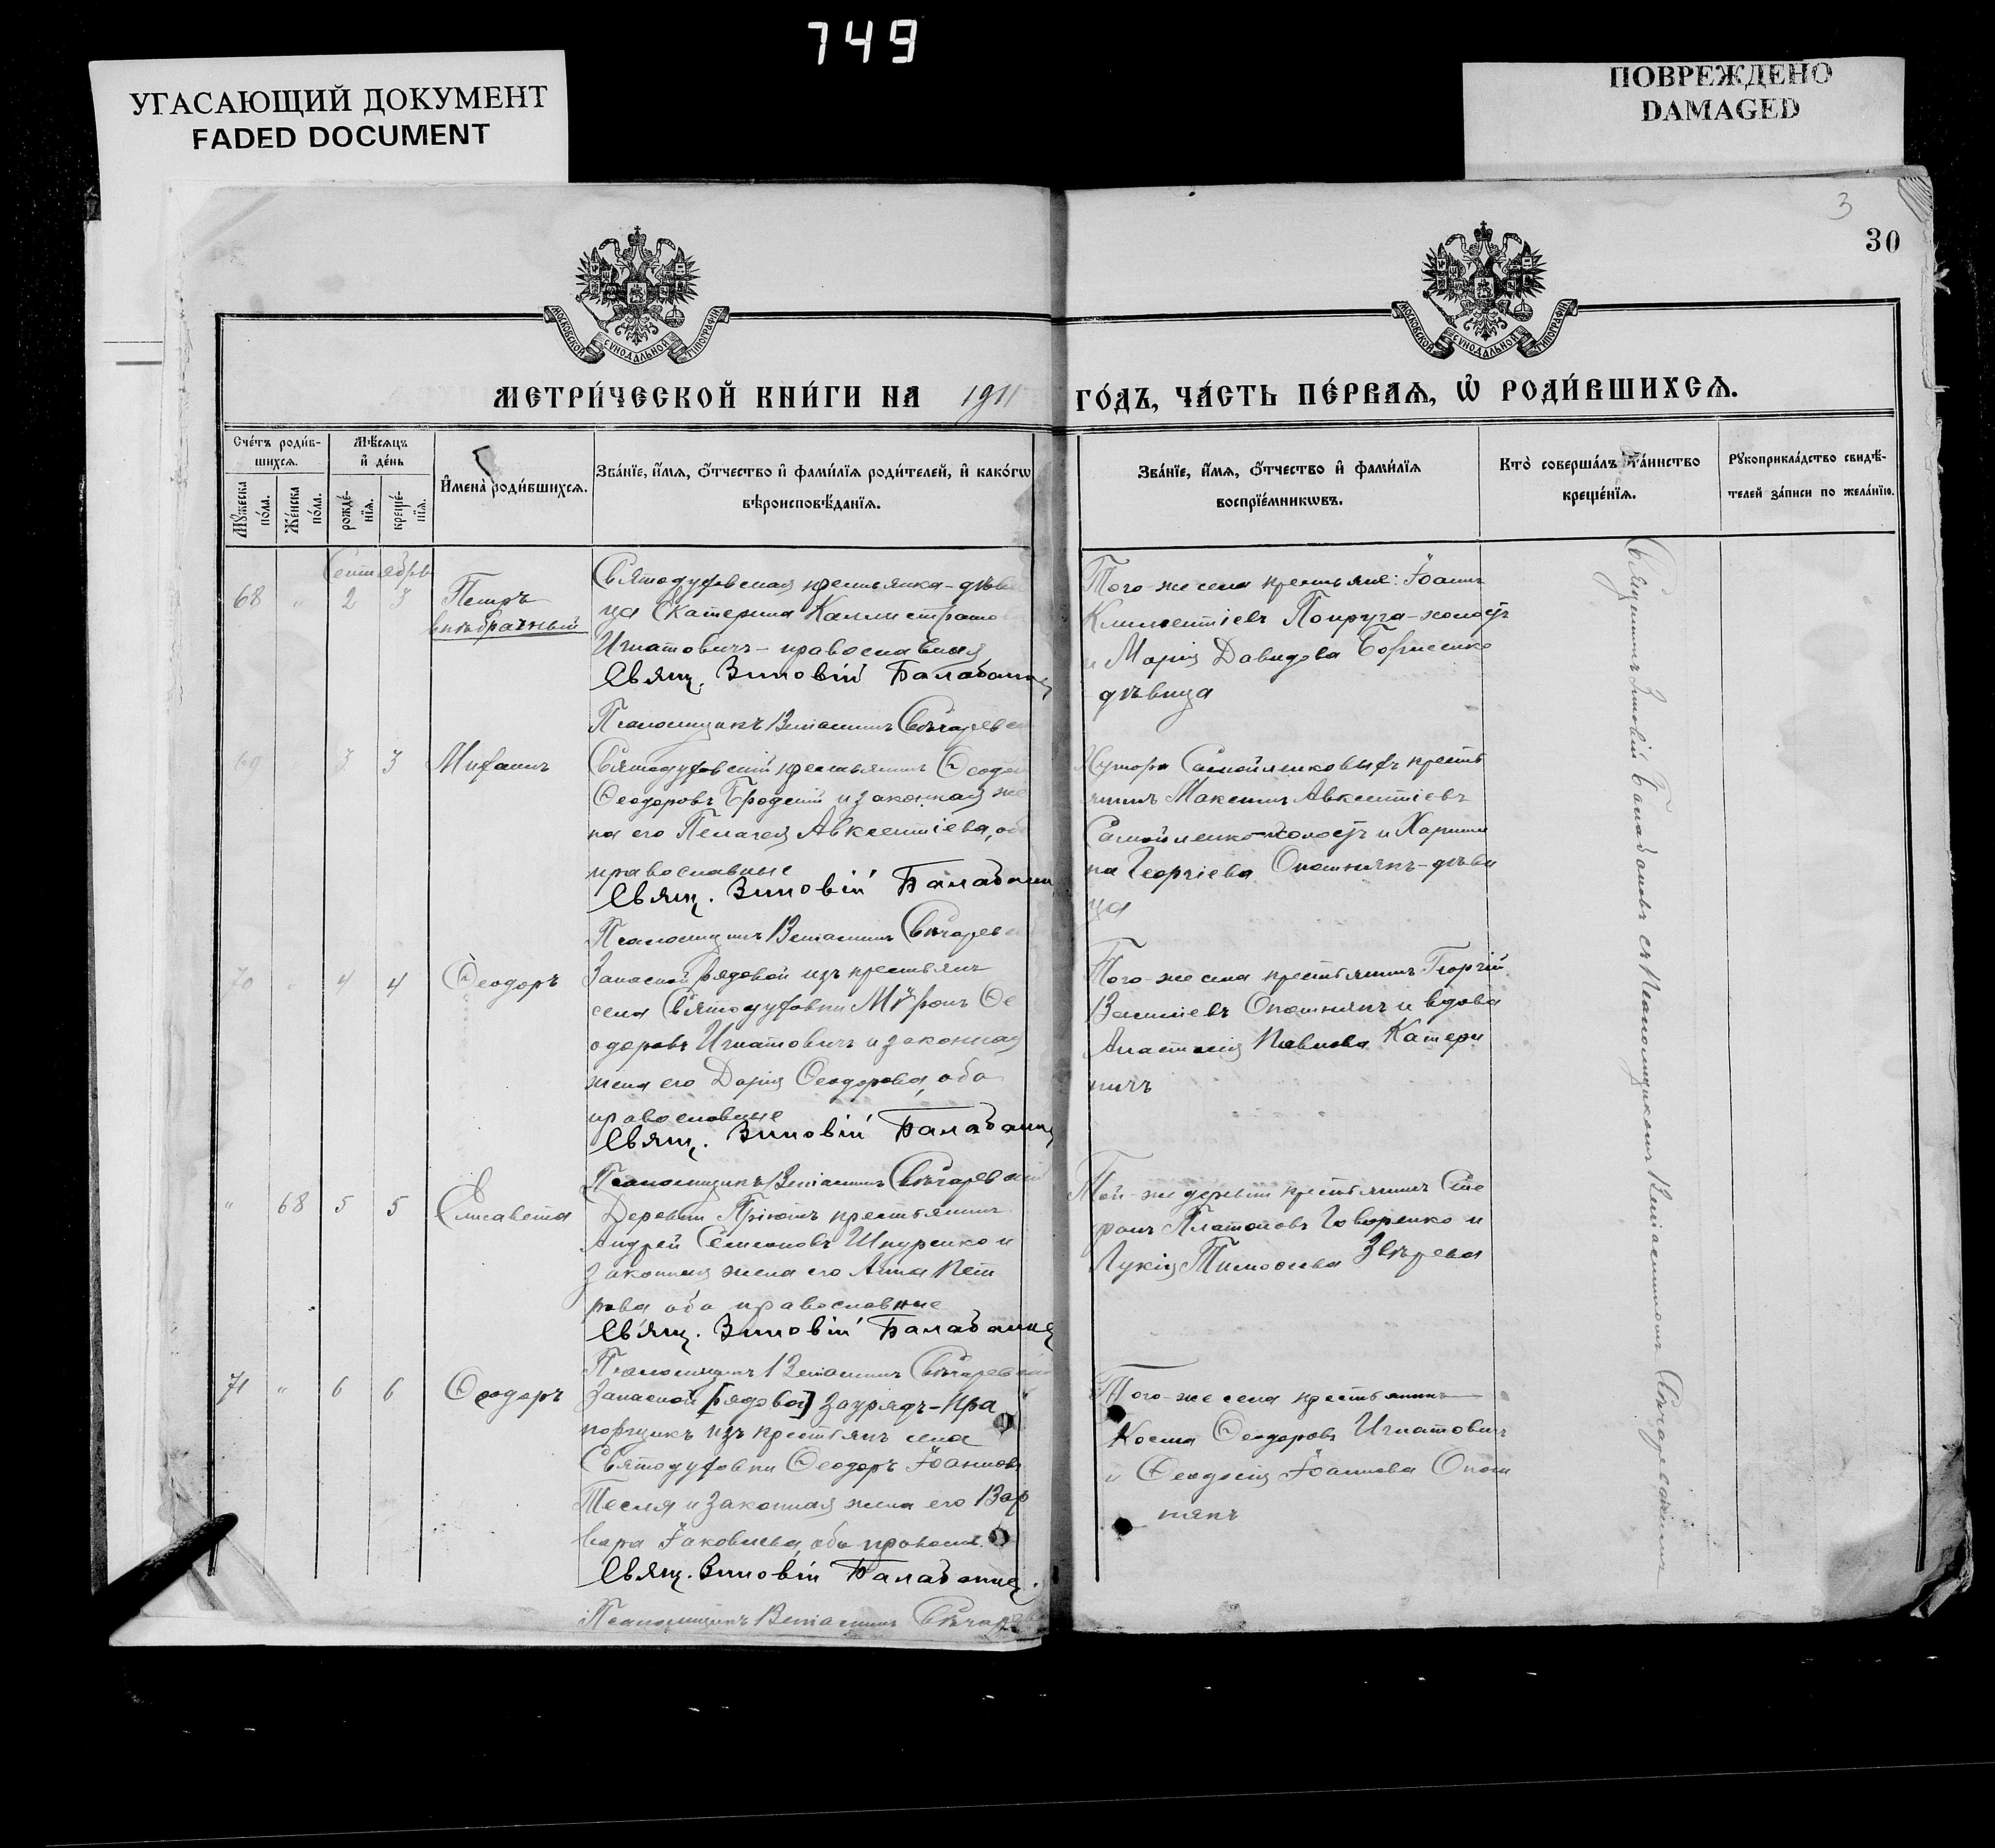 749
УГАСАЮЩИЙ ДОКУМЕНТ
FADED DOCUMENT
ПОВРЕЖДЕНО
DAMAGED
3
30
МОСКОВСКОЙ СѴНОДАЛЬНОЙ ТИПОГРАФІИ
МОСКОВСКОЙ СѴНОДАЛЬНОЙ ТИПОГРАФІИ
МЕТРИ́ЧЕСКОЙ КНИ́ГИ НА 1911 ГО́ДЪ, ЧА́СТЬ ПЕ́РВАѦ, Ѡ҆ РОДИ́ВШИХСѦ.
Сче́тъ роди́в-
шихсѧ.
Мꙋ́жеска по́ла.
Же́нска по́ла.
Мѣ́сѧцъ
и҆ де́нь
рожде́-
нїѧ.
креще́-
нїѧ.
И҆мена̀ роди́вшихсѧ.
Зва́нїе, и҆́мѧ, ѻ҆́тчество и҆ фами́лїѧ роди́телей, и҆ како́гѡ
вѣроисповѣ́данїѧ.
Зва́нїе, и҆́мѧ, ѻ҆́тчество и҆ фами́лїѧ
воспрїе́мникѡвъ.
Кто̀ соверша́лъ та́инство
креще́нїѧ.
Рꙋкоприкла́дство свидѣ́-
телей за́писи по жела́нїю.
Сентябрь
68 " 2 3 Петръ
внѣбрачный
Святодуховская крестьянка-дѣви
ца Екатерина Каллистратова
Игнатовичъ - православная
Свящ. Зиновій Балабан
Псаломщикъ Веніаминъ Свѣчарев
Того-же села крестьяне: Іоаннъ
Климентіевъ Попруга-холостъ
и Марія Давидова Борисенко
дѣвица
69 3 3 Мифанъ
Святодуховскій крестьянинъ Ѳеодор
Ѳеодоровъ Бродскій и законная же
на его Пелагея Авксентіева, оба
православные
Свящ. Зиновій Балабан
Псаломщикъ Веніаминъ Свѣчарев
Хутора Самойленковыхъ кресть
янинъ Максимъ Авксентіевъ
Самойленко-холостъ и Харити
на Георгіева Опошнякъ-дѣви
ца
70 " 4 4 Ѳеодоръ
Запасной рядовой изъ крестьянъ
села Святодуховки Мѵронъ Ѳе
одоровъ Игнатовичъ и законная
жена его Дарія Ѳеодорова, оба
православные
Свящ. Зиновій Балабан
Псаломщикъ Веніаминъ Свѣчарев
Того-же села крестьянинъ Георгій
Василіевъ Опошнякъ и вдова
Анастасія Павлова Катери
ничъ
" 68 5 5 Елисавета
Деревни Пріютъ крестьянинъ
Андрей Семеоновъ Шпуренко и
законная жена его Анна Пет
рова оба православные
Свящ. Зиновій Балабан
Псаломщикъ Веніаминъ Свѣчарев
Той-же деревни крестьянинъ Сте
фанъ Платоновъ Говоренко и
Лукія Тимоѳеева Звѣрева
71 " 6 6 Ѳеодоръ
Запасной [рядовой] заурядъ-пра
порщикъ изъ крестьянъ села
Святодуховки Ѳеодоръ Іоанновъ
Тесля и законная жена его Вар
вара Іаковлева, оба правосл.
Свящ. Зиновій Балабан
Псаломщикъ Веніаминъ Свѣчарев
Того-же села крестьянинъ
Косма Ѳеодоровъ Игнатовичъ
и Ѳеодосія Іоаннова Опош
някъ
Священникъ Зиновій Балабановъ съ псаломщикомъ Веніаминомъ